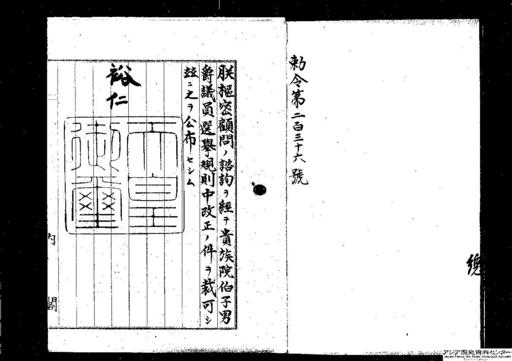 勅令第二百三十六號
朕樞密顧問ノ諮詢ヲ經テ貴族院伯子男
爵議員選擧規則中改正ノ件ヲ裁可シ
玆ニ之ヲ公布セシム
裕仁
天皇
御璽
内閣
アジア歴史資料センター